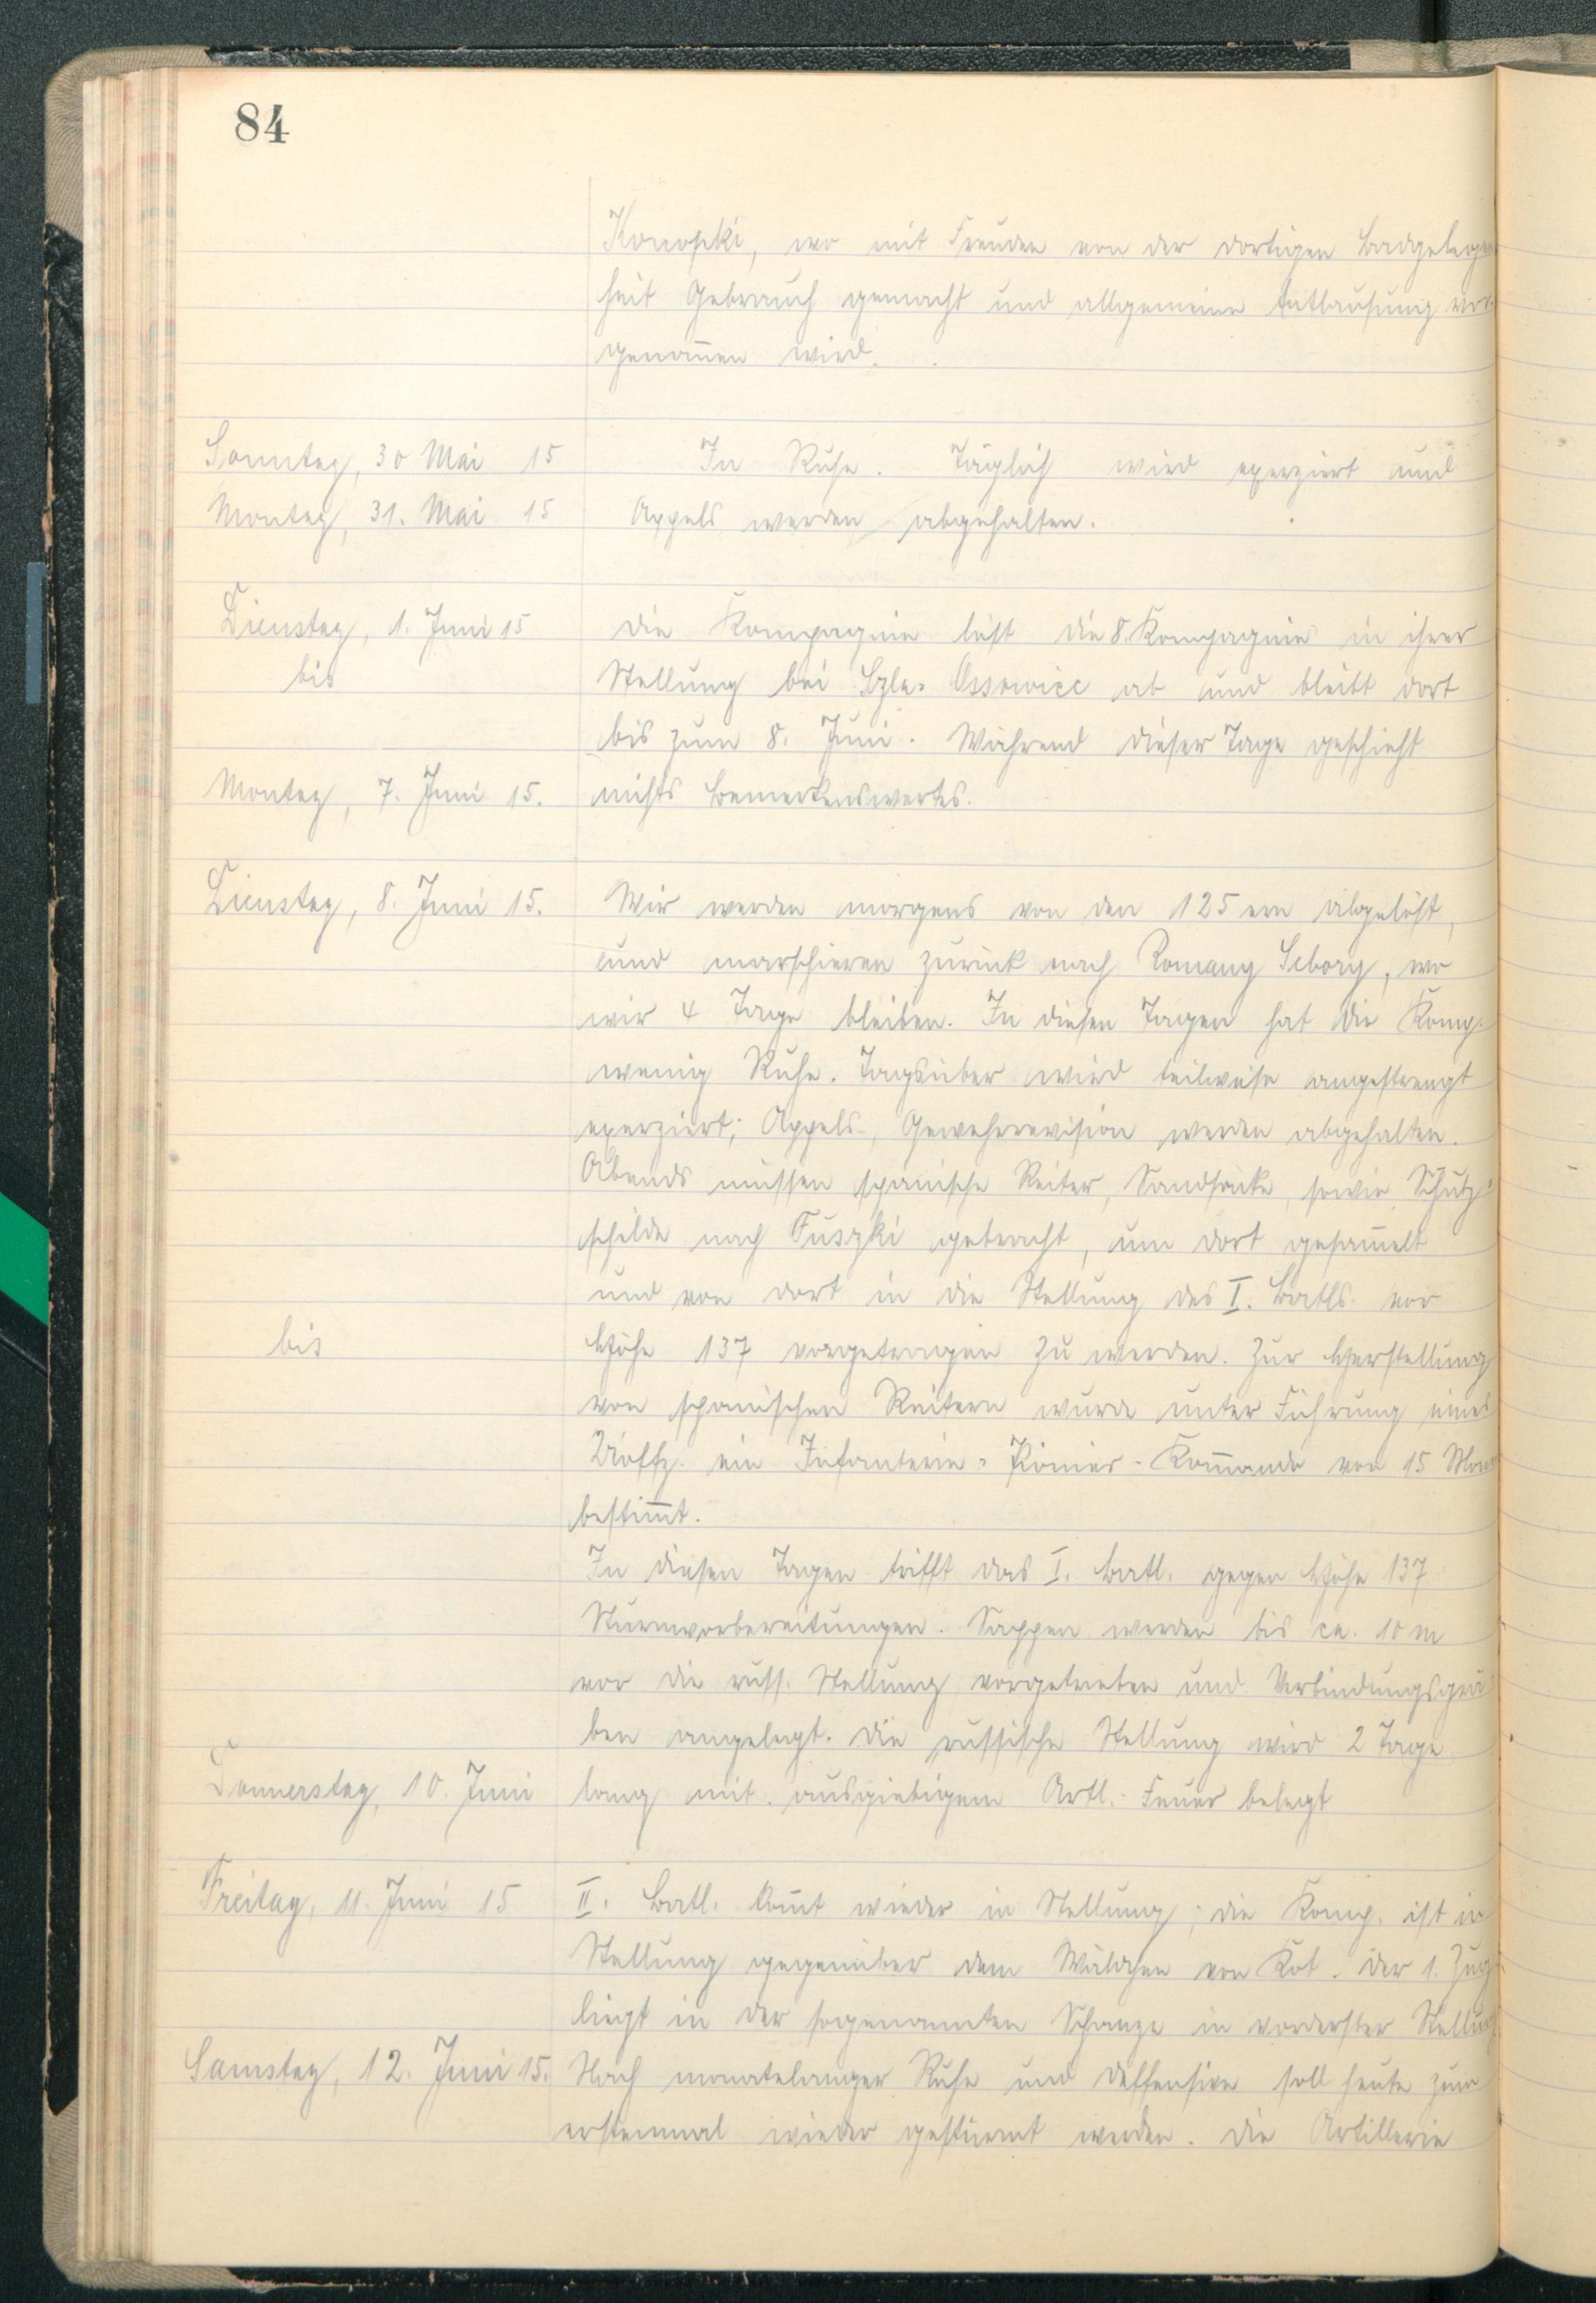 84
Konopki, wo mit Freuden von der dortigen Badgelegen
heit Gebrauch gemacht und allgemeine Entlausung vor
genom̅en wird.
Sonntag, 30 Mai 15 In Ruhe. Täglich wird exerziert und
Montag, 31. Mai 15 Appels werden abgehalten.
Dienstag, 1. Juni 15 Die Kompagnie löst die 8. Kompagnie in ihrer
bis Stellung bei Szla- Ossowice ab und bleibt dort
bis zum 8. Juni. Während dieser Tage geschieht
Montag, 7. Juni 15. nichts Bemerkenswertes.
Dienstag, 8. Juni 15. Wir werden morgens von den 125 ern abgelöst,
und marschieren zurück nach Romany Seborg, wo
wir 4 Tage bleiben. In diesen Tagen hat die Komp.
wenig Ruhe. Tagsüber wird teilweise angestrengt
exerziert; Appels, Gewehrrevision werden abgehalten.
Abends müssen spanische Reiter, Sandsäcke, sowie Schutz-
schilde nach Fuszki gebracht, um dort gesam̅elt
und von dort in die Stellung des I. Batls. vor
bis Höhe 137 vorgetragen zu werden. Zur Herstellung
von spanischen Reitern wurde unter Führung eines
Uoffz. ein Infanterie-Pionier-Kom̅ando von 15 Mann
bestim̅t.
In diesen Tagen trifft das I. Batl. gegen Höhe 137
Sturmvorbereitungen. Sappen werden bis ca. 10 m
vor die russ. Stellung vorgetrieben und Verbindungsgrä
ben angelegt. Die russische Stellung wird 2 Tage
Donnerstag, 10. Juni lang mit ausgiebigem Artl.-Feuer belegt
Freitag, 11. Juni 15 II. Batl. kom̅t wieder in Stellung; die Komp. ist in
Stellung gegenüber dem Wäldchen von Kot. Der 1. Zug
liegt in der sogenannten Schanze in vorderster Stellung
Samstag, 12. Juni 15. Nach monatelanger Ruhe und Deffensive soll heute zum
erstenmal wieder gestürmt werden. Die Artillerie